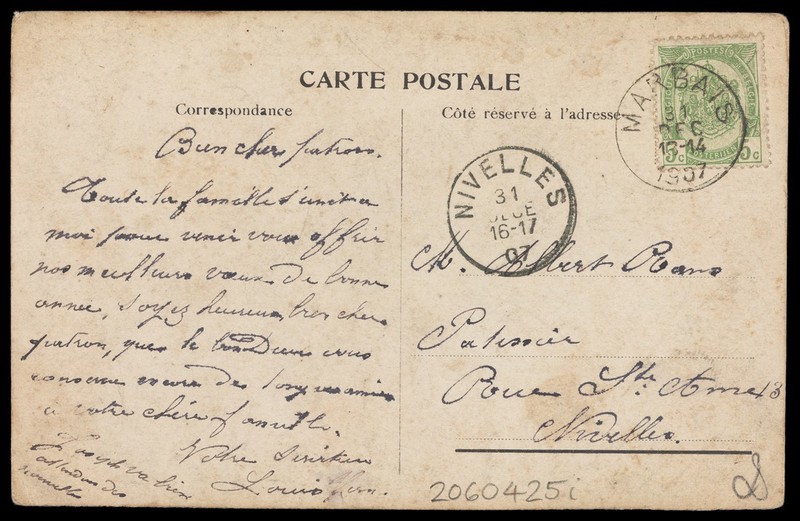 CARTE POSTALE
Correspondance
Côté réservé à l'adresse
Bien cher patron.
Toute la famille s'unit a
moi pour venir vous offrir
nos meilleurs vœux de bonne
année, soyez heureux, très cher
patron, que le bon Dieu vous
conserve encore des longues années
à votre chère famille.
Votre
Louis
Joseph va bien
nouvelles
POSTES
5c 5c
MARBAIS
31
DEC
13-14
1907
NIVELLES
31
DECE
16-17
07
M. Albert
Patissier
Rue Ste Anne 13
Nivelles.
2060425i